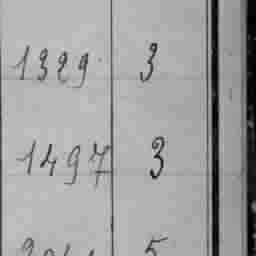 1329 3
1497 3
5